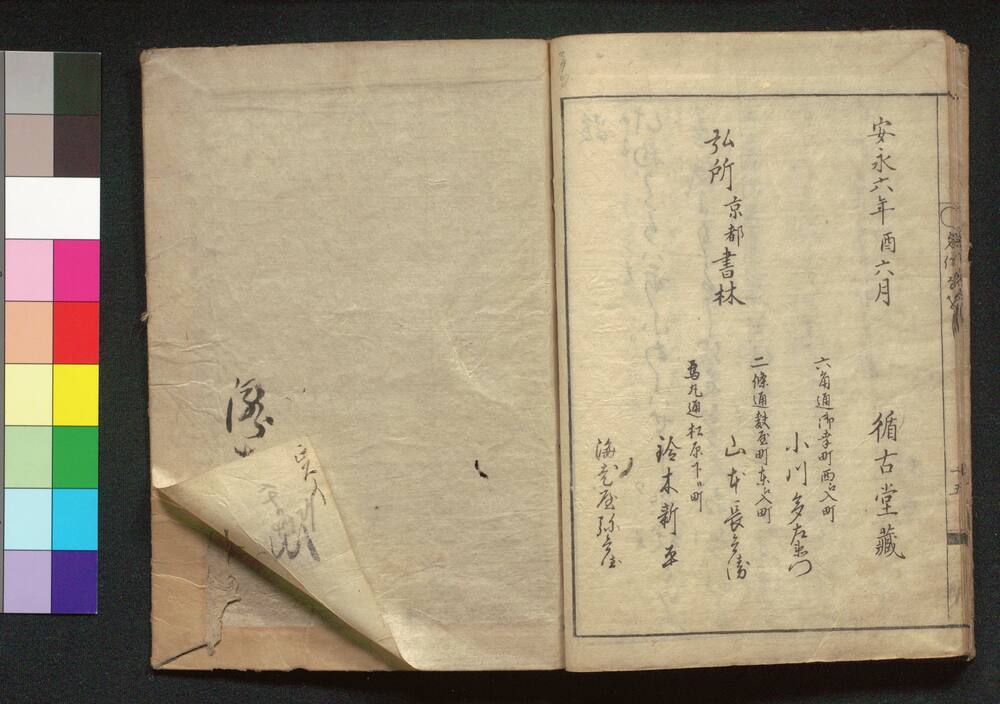 安永六年酉六月
循古堂藏
弘所 京都書林
六角通御幸町西へ入町
小川多左衛門
二條通麩屋町東へ入町
山本長兵衛
烏丸通松原下ル町
鈴木新平
海老屋弥兵衛
十五